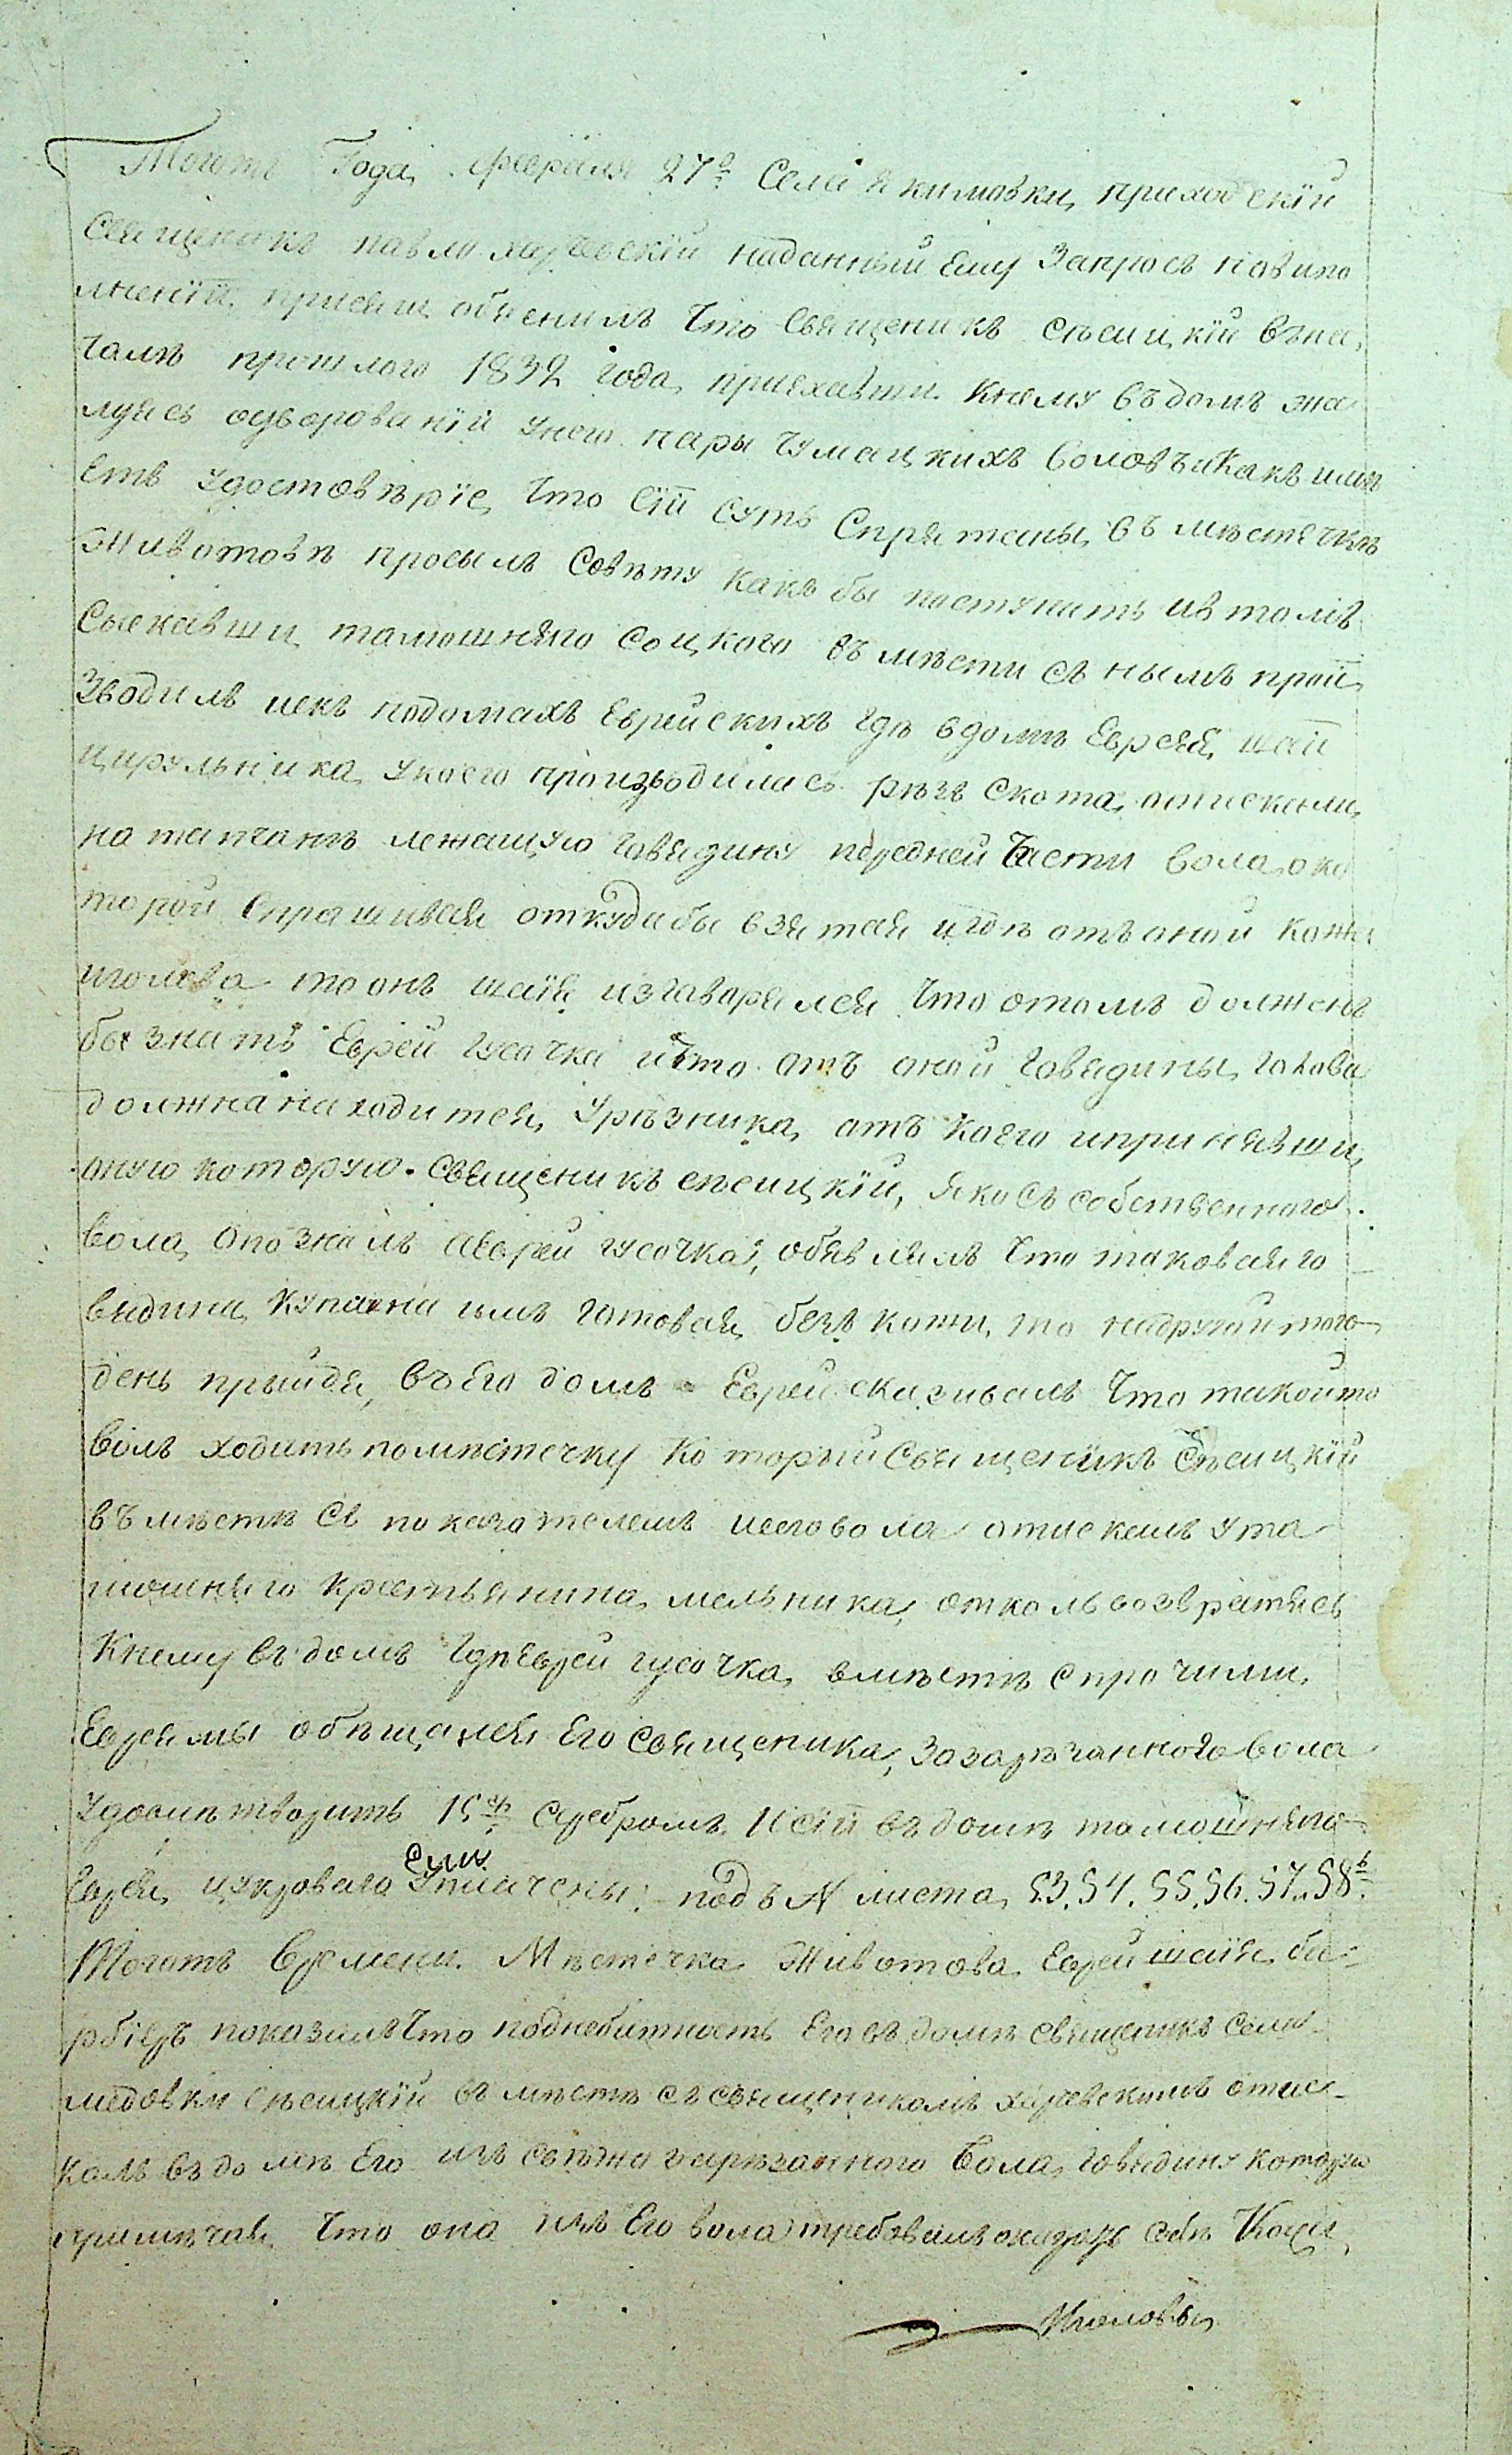 Тогожъ Года, февраля 27º Села Якимовки, приходскїй
Священикъ павло харчевскїй наданный Ему Запросъ повыпо
лненїи, присяги, обяснилъ Что Священикъ Сѣсицкїй Въна,
чалѣ прошлого 1832 Года, приехавши Кнему Въдомъ жа
луясь оуворованїи унего пары Чумацкихъ Воловъ иКакъ имѣ
еть Удостовѣрїе, Что Сїи Суть Спрятаны, въ мѣстечкѣ
Животовѣ просылъ Совѣту Какъ бы поступить ивтомъ
Сыскавши тамошняго Соцкого въмѣсти съ нымъ прои
зводилъ искъ подомахъ Еврейскихъ Гдѣ вдомѣ Еврея, шаи
цирульника, Укоего производилась рѣзъ Скота, отискали
на тапчанѣ лежащую Говядину передней Части Вола, око
торой Спрашивая откудабы взятая игдѣ отъоной кожа
иголова то онъ шаїя изгаварялся Что отомъ долженъ
бы знать Еврей Гусочка иЧто отъ оной Говядины, голова
должна находится, Урѣзника, отъ Коего ипринявши,
оную которую Священикъ сѣсицкїй, Яко съ собственного
Вола, Опозналъ аеврей гусочка, обявлялъ Что таковая го
вядина, Купленна имъ Готовая, безъ кожи, то надругой того
день прыйдя, Въ Его домъ Еврей сказивалъ Что такойто
Волъ ходить помѣстечку Который Священикъ Сѣсицкїй
въмѣстѣ Съ показателемъ исеговола отискалъ Ута
мошняго крестьянина, мельника, отколь возвратясь
Кнему въдомъ Гдѣеврей гусочка, вмѣстѣ спрочими,
Евреямы обѣщался Его Священика, зазарѣзанного вола
Удовлѣтворить 15 ср Серебромъ. И сїи въдомѣ тамошняго
Еврея, цукрового Ему Уплачены: подъ N листа, 53. 54. 55. 56. 57. и 58 ъ
Тогожъ Времени. Мѣстечка Животова, Еврей шаїя, ба
рбіеръ показалъ Что поднебитность Его въ домѣ Священикъ Села
медовки Сѣсицкїй въмѣстѣ съ священикомъ харчевскимъ отис
калъ въ домѣ Его изъ зарѣзанного Вола, говядину котору
примѣчая, Что она изъ Его вола требовалъ оказать Себѣ Кожи,
Иголовы,